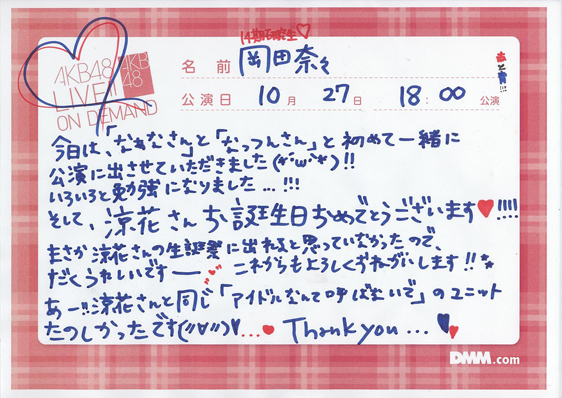 14期研究生♡
AKB48
LIVE!!
ON DEMAND
AKB
48
名 前 岡田奈々
赤と青!!!
公演日 10月 27日 18:00 公演
今日は、「なぁなさん」と「なっつんさん」と初めて一緒に
公演に出させていただきました(*´ω`*)!!
いろいろと勉強になりました...!!!
そして、涼花さんお誕生日おめでとうございます♥!!!!
まさか涼花さんの生誕祭に出れると思っていなかったので、
だくうれしいですー これからもよろしくおねがいします!!
あー!!涼花さんと同じ「アイドルなんて呼ばないで」のユニット
たのしかったです(//∀//)♥...♥ Thank you...♥
DMM.com